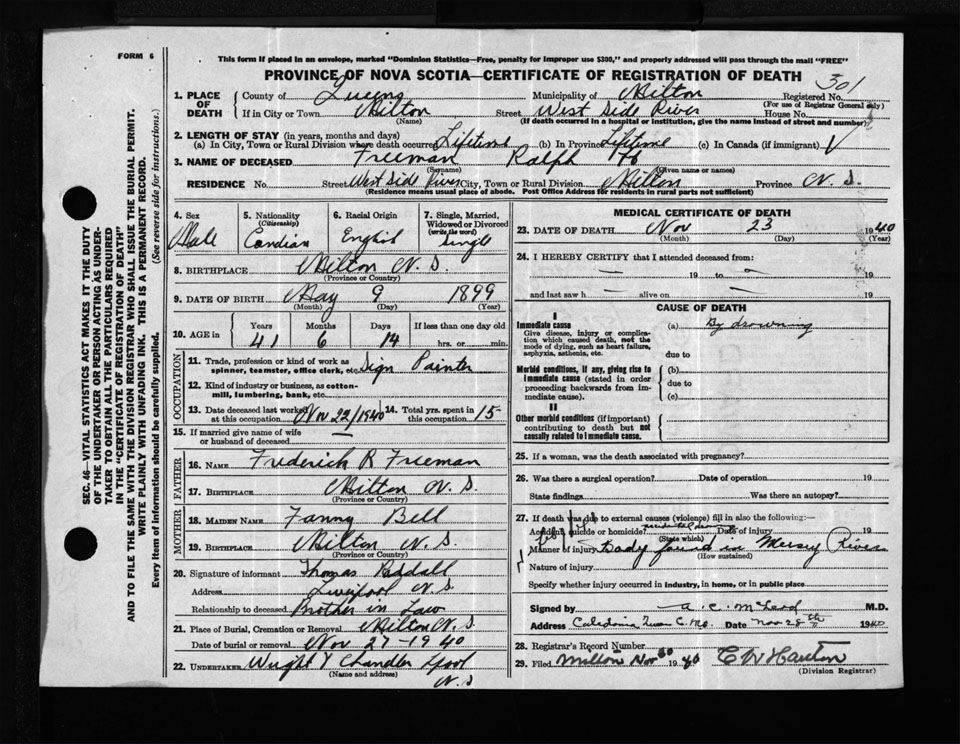 FORM 6
This form if placed in an envelope, marked "Dominion Statistics—Free, penalty for improper use $300," and properly addressed will pass through the mail "FREE"
PROVINCE OF NOVA SCOTIA—CERTIFICATE OF REGISTRATION OF DEATH
301
1. PLACE OF DEATH County of Queens Municipality of Milton Registered No.
(For use of Registrar General only)
If in City or Town Milton Street West Side River House No.
(Name) (If death occurred in a hospital or institution, give the name instead of street and number)
2. LENGTH OF STAY (in years, months and days)
(a) In City, Town or Rural Division where death occurred Lifetime (b) In Province Lifetime (c) In Canada (if immigrant)
3. NAME OF DECEASED Freeman Ralph H
(Surname) (Given name or names)
RESIDENCE No. Street West Side River City, Town or Rural Division Milton Province N. S.
(Residence means usual place of abode. Post Office Address for residents in rural parts not sufficient)
4. Sex Male
5. Nationality (Citizenship) Candian
6. Racial Origin English
7. Single, Married, Widowed or Divorced (write the word) Single
8. BIRTHPLACE Milton N. S.
(Province or Country)
9. DATE OF BIRTH May 9 1899
(Month) (Day) (Year)
10. AGE in Years 41 Months 6 Days 14 If less than one day old hrs. or min.
OCCUPATION
11. Trade, profession or kind of work as spinner, teamster, office clerk, etc. Sign Painter
12. Kind of industry or business, as cotton-mill, lumbering, bank, etc.
13. Date deceased last worked at this occupation Nov 22/1940 14. Total yrs. spent in this occupation 15
15. If married give name of wife or husband of deceased
FATHER
16. NAME Frederick R Freeman
17. BIRTHPLACE Milton N. S.
(Province or Country)
MOTHER
18. MAIDEN NAME Fanny Bell
19. BIRTHPLACE Milton N. S.
(Province or Country)
20. Signature of informant Thomas Raddall
Address Liverpool N. S.
Relationship to deceased Brother in Law
21. Place of Burial, Cremation or Removal Milton N. S.
Date of burial or removal Nov 27-1940
22. UNDERTAKER Wright Y Chandler Lpool
(Name and address) N. S
MEDICAL CERTIFICATE OF DEATH
23. DATE OF DEATH Nov 23 1940
(Month) (Day) (Year)
24. I HEREBY CERTIFY that I attended deceased from:
— 19 to — 19
and last saw h — alive on — 19
CAUSE OF DEATH
I
Immediate cause (a) By drowning
Give disease, injury or complication which caused death, not the mode of dying, such as heart failure, asphyxia, asthenia, etc.
due to
Morbid conditions, if any, giving rise to immediate cause (stated in order proceeding backwards from immediate cause).
(b)
due to
(c)
II
Other morbid conditions (if important) contributing to death but not causally related to immediate cause.
25. If a woman, was the death associated with pregnancy?
26. Was there a surgical operation? Date of operation 19
State findings Was there an autopsy?
27. If death was due to external causes (violence) fill in also the following:—
Accident, suicide or homicide? accidental drowning Date of injury 19
(State which)
Manner of injury Body found in Mersey River
(How sustained)
Nature of injury
Specify whether injury occurred in industry, in home, or in public place
Signed by A. C. McLeod M.D.
Address Caledonia Queens Co. N.S. Date Nov 28th 1940
28. Registrar's Record Number
29. Filed Milton Nov 30 1940
(Division Registrar)
SEC. 46—VITAL STATISTICS ACT MAKES IT THE DUTY
OF THE UNDERTAKER OR PERSON ACTING AS UNDER-
TAKER TO OBTAIN ALL THE PARTICULARS REQUIRED
IN THE "CERTIFICATE OF REGISTRATION OF DEATH"
AND TO FILE THE SAME WITH THE DIVISION REGISTRAR WHO SHALL ISSUE THE BURIAL PERMIT.
WRITE PLAINLY WITH UNFADING INK. THIS IS A PERMANENT RECORD.
Every item of Information should be carefully supplied. (See reverse side for instructions.)